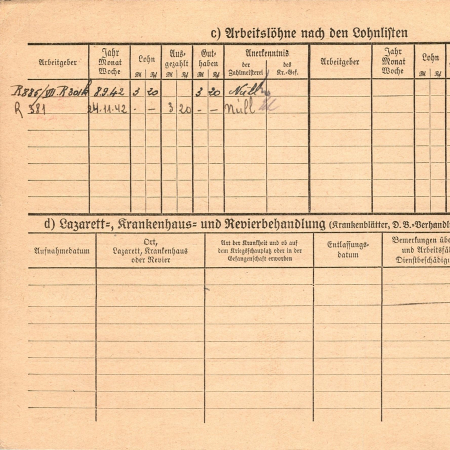 c) Arbeitslöhne nach den Lohnlisten
Arbeitgeber Jahr Monat Woche Lohn ℛℳ ₰ Ausgezahlt ℛℳ ₰ Guthaben ℛℳ ₰ Anerkenntnis der Zahlmeisterei des Kr.-Gef. Arbeitgeber Jahr Monat Woche Lohn
8.9.42 3 20 3 20 Nüll
R 581 24.11.42 - - 3 20 - - Nüll
d) Lazarett-, Krankenhaus- und Revierbehandlung (Krankenblätter, D.B.-Verhandl
Aufnahmedatum Ort, Lazarett, Krankenhaus oder Revier Art der Krankheit und ob auf dem Kriegsschauplatz oder in der Gefangenschaft erworben Entlassungsdatum Bemerkungen übe und Arbeitsfäh Dienstbeschädigu